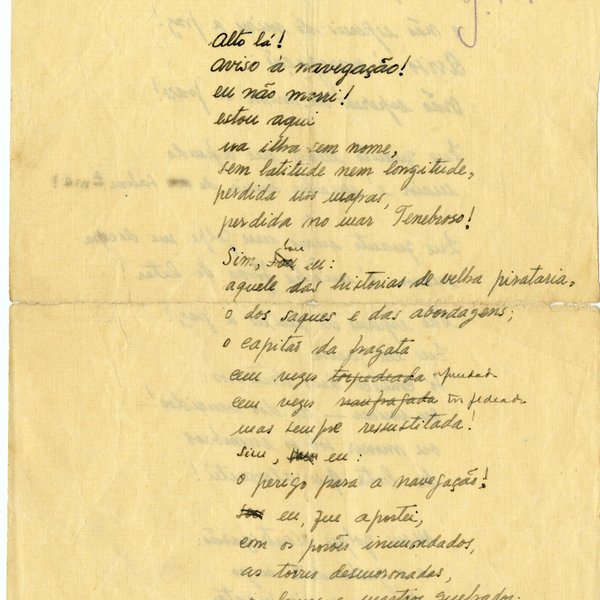 Alto lá!
Aviso à navegação!
eu não morri!
estou aqui
na ilha sem nome,
sem latitude nem longitude,
perdida nos mapas,
perdida no mar Tenebroso!
Sim, sou eu:
aquele das historias de velha pirataria,
o dos saques e das abordagens;
o capitão da fragata
cem vezes torpedeada afundada
cem vezes naufragada torpedeada
mas sempre ressuscitada!
Sim, sou eu:
o perigo para a navegação!
Sou eu, que aportei,
com os porões inundados,
as torres desmoronadas,
mastros quebrados.